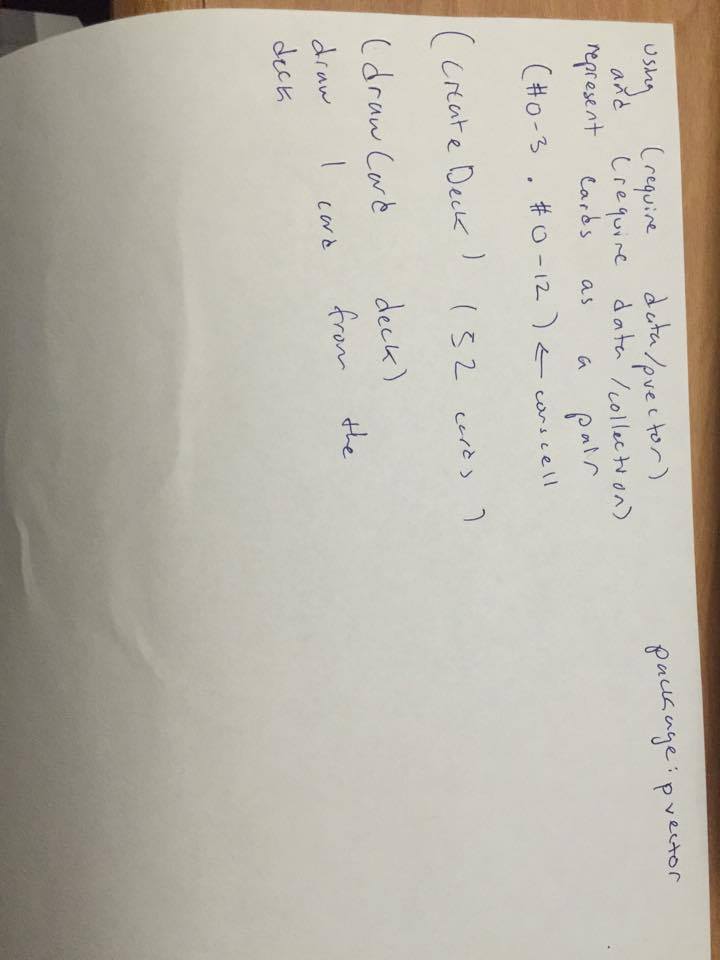 using (require data/pvector)
and (require data/collection)
represent cards as a pair
(#0-3 . #0-12) ← conscell
(createDeck) (52 cards)
(drawCard deck)
draw 1 card from the
deck
package: pvector